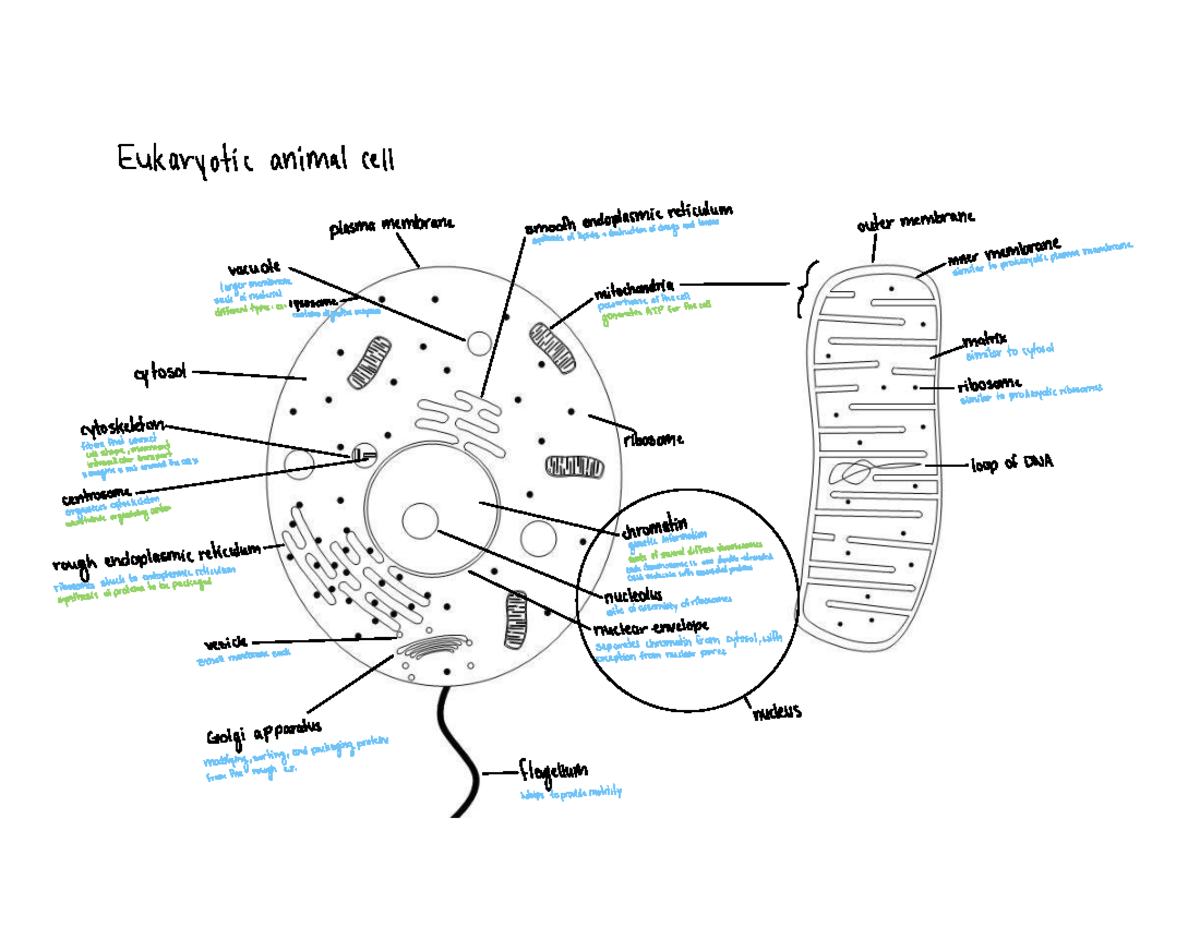 Eukaryotic animal cell
plasma membrane
smooth endoplasmic reticulum
synthesis of lipids + destruction of drugs and toxins
vacuole
larger membrane
sack of material
different types: ex. lysosome
contains digestive enzymes
mitochondria
powerhouse of the cell
generates ATP for the cell
outer membrane
inner membrane
similar to prokaryotic plasma membrane
matrix
similar to cytosol
ribosome
similar to prokaryotic ribosomes
loop of DNA
cytosol
cytoskeleton
fibers that connect
cell shape, movement
intracellular transport
centrosome
organizes cytoskeleton
microtubule organizing center
rough endoplasmic reticulum
ribosomes stuck to endoplasmic reticulum
synthesis of proteins to be packaged
vesicle
small membrane sack
Golgi apparatus
modifying, sorting, and packaging proteins
from the rough e.r.
flagellum
helps to provide motility
ribosome
chromatin
genetic information
of several different chromosomes
each chromosome is one double-stranded
DNA molecule with associated proteins
nucleolus
site of assembly of ribosomes
nuclear envelope
separates chromatin from cytosol, with
exception from nuclear pores
nucleus